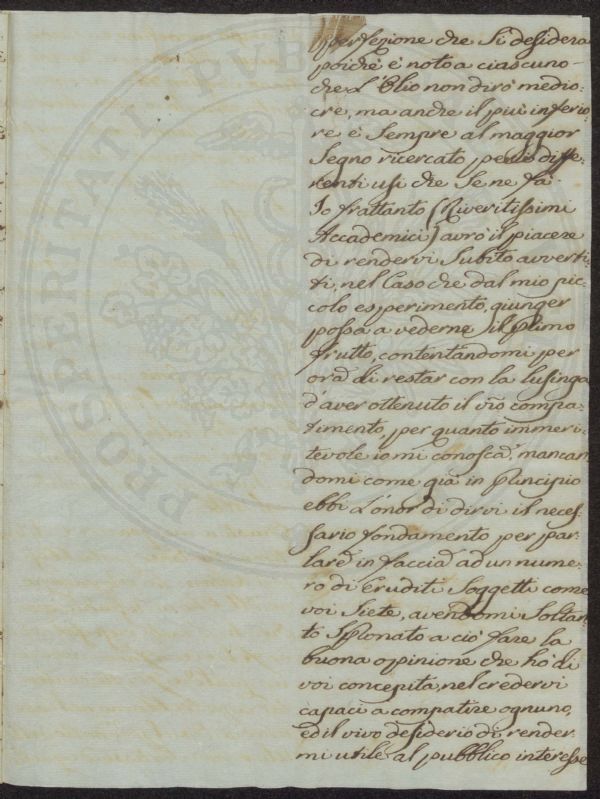 perfezione che si desidera
poichè è noto a ciascuno
che l'Olio non dirò medio-
cre, ma anche il più inferio-
re è sempre al maggior
segno ricercato pelli diffe-
renti usi che se ne fà.
Io frattanto (Riveritissimi
Accademici) avrò il piacere
di rendervi subito avverti-
ti, nel Caso che dal mio pic-
colo esperimento, giunger
possa a vederne il primo
frutto, contentandomi per
ora di restar con la lusinga
d'aver ottenuto il vr̃o compa-
timento, per quanto immeri-
tevole io mi conosca, mancan-
domi come già in principio
ebbi l'onor di dirvi il neces-
sario fondamento per par-
lare in faccia ad un nume-
ro di Eruditi Soggetti come
voi siete, avendomi soltan-
to spronato a ciò fare la
buona opinione che hò di
voi concepita, nel credervi
capaci a compatire ognuno,
ed il vivo desiderio di render-
mi utile al pubblico interesse
PROSPERITATI PUB